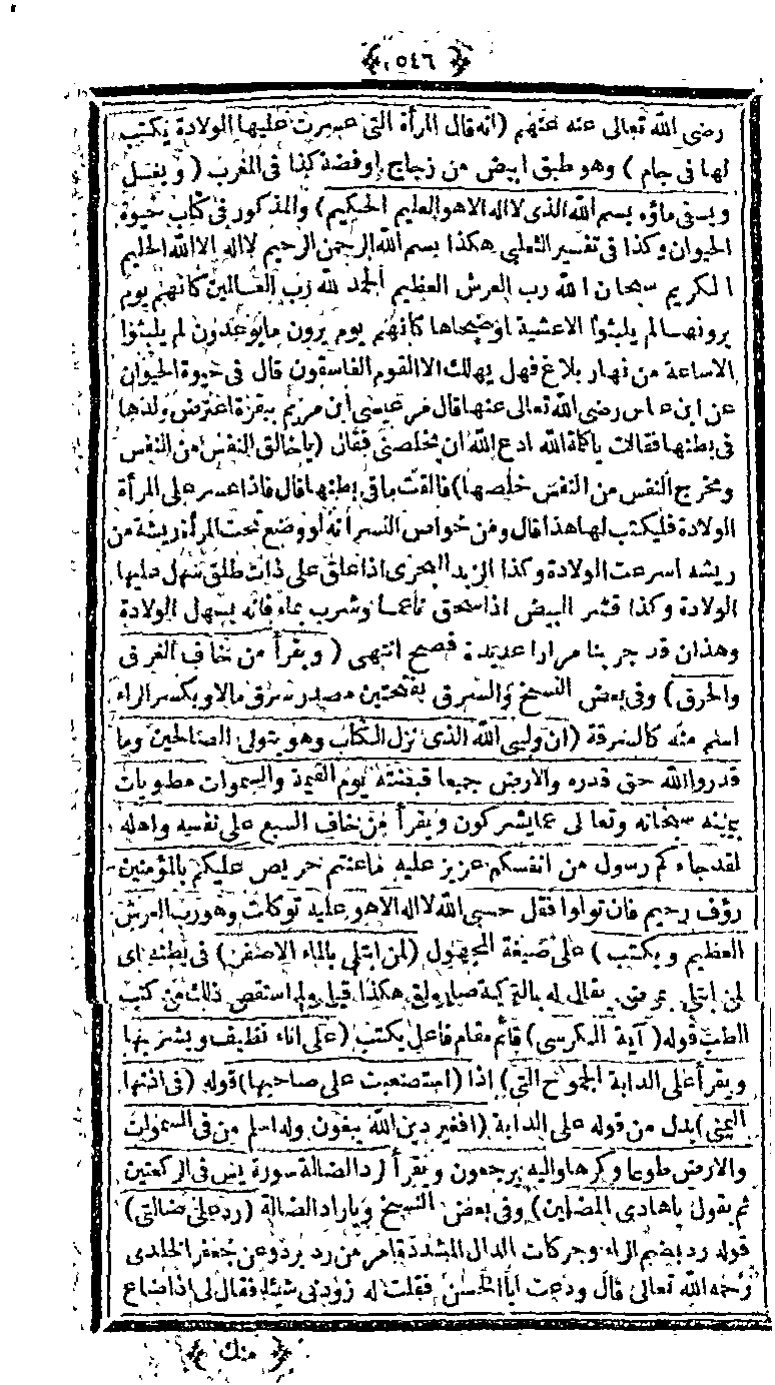 ﴿ ٥٤٦ ﴾
رضى الله تعالى عنه عنهم (انه قال المرأة التى عسرت عليها الولادة يكتب
لها فى جام ) وهو طبق ابيض من زجاج اوفضة كذا فى المغرب ( ويغسل
ويسقى ماؤه بسم الله الذى لا اله الا هو العليم الحكيم) والمذكور فى كتاب حيوة
الحيوان وكذا فى تفسير الثعلبى هكذا بسم الله الرحمن الرحيم لا اله الا الله الحليم
الكريم سبحان الله رب العرش العظيم الحمد لله رب العالمين كانهم يوم
يرونها لم يلبثوا الا عشية اوضحاها كأنهم يوم يرون مايوعدون لم يلبثوا
الاساعة من نهار بلاغ فهل يهلك الا القوم الفاسقون قال فى حيوة الحيوان
عن ابن عباس رضى الله تعالى عنهما قال مر عيسى ابن مريم ببقرة اعترض ولدها
فى بطنها فقالت ياكلمة الله ادع الله ان يخلصنى فقال (ياخالق النفس من النفس
ومخرج النفس من النفس خلصها) فالقت ما فى بطنها قال فاذا عسر على المرأة
الولادة فليكتب لها هذا قال ومن خواص النسر أنه لو وضع تحت المرأة ريشة من
ريشه اسرعت الولادة وكذا الزبد البحرى اذا علق على ذات طلق سهل عليها
الولادة وكذا قشر البيض اذا سحق ناعما وشرب بماء فانه يسهل الولادة
وهذان قد جربنا مرارا عديدة فصح انتهى ( ويقرأ من خاف الغرق
والحرق ) وفى بعض النسخ والسرق بفتحتين مصدر سرق مالا وبكسر الراء
اسم منه كالسرقة (ان وليى الله الذى نزل الكتاب وهو يتولى الصالحين وما
قدروا الله حق قدره والارض جميعا قبضته يوم القيمة والسموات مطويات
بيمينه سبحانه وتعالى عما يشركون ويقرأ من خاف السبع على نفسه واهله
لقد جاءكم رسول من انفسكم عزيز عليه ماعنتم حريص عليكم بالمؤمنين
رؤف رحيم فان تولوا فقل حسبى الله لا اله الا هو عليه توكلت وهو رب العرش
العظيم ويكتب ) على صيغة المجهول (لمن ابتلى بالماء الاصفر) فى بطنه اى
لمن ابتلى بمرض يقال له بالتركية صارولق هكذا قيل وليستقص ذلك من كتب
الطب قوله ( آية الكرسى) قائم مقام فاعل يكتب (على اناء نظيف ويشربها
ويقرأ على الدابة الجموح التى) اذا (استصعبت على صاحبها) قوله (فى اذنها
اليمنى) بدل من قوله على الدابة (افغير دين الله يبغون وله اسلم من فى السموات
والارض طوعا وكرها واليه يرجعون ويقرأ لرد الضالة سورة يس فى الركعتين
ثم يقول ياهادى المضلين) وفى بعض النسخ وياراد الضالة (رد على ضالتى)
قوله رد بضم الراء وحركات الدال المشددة امر من رد يرد وعن جعفر الخلدى
رحمه الله تعالى قال ودعت ابا الحسن فقلت له زودنى شيئا فقال لى اذا ضاع
﴿ منك ﴾